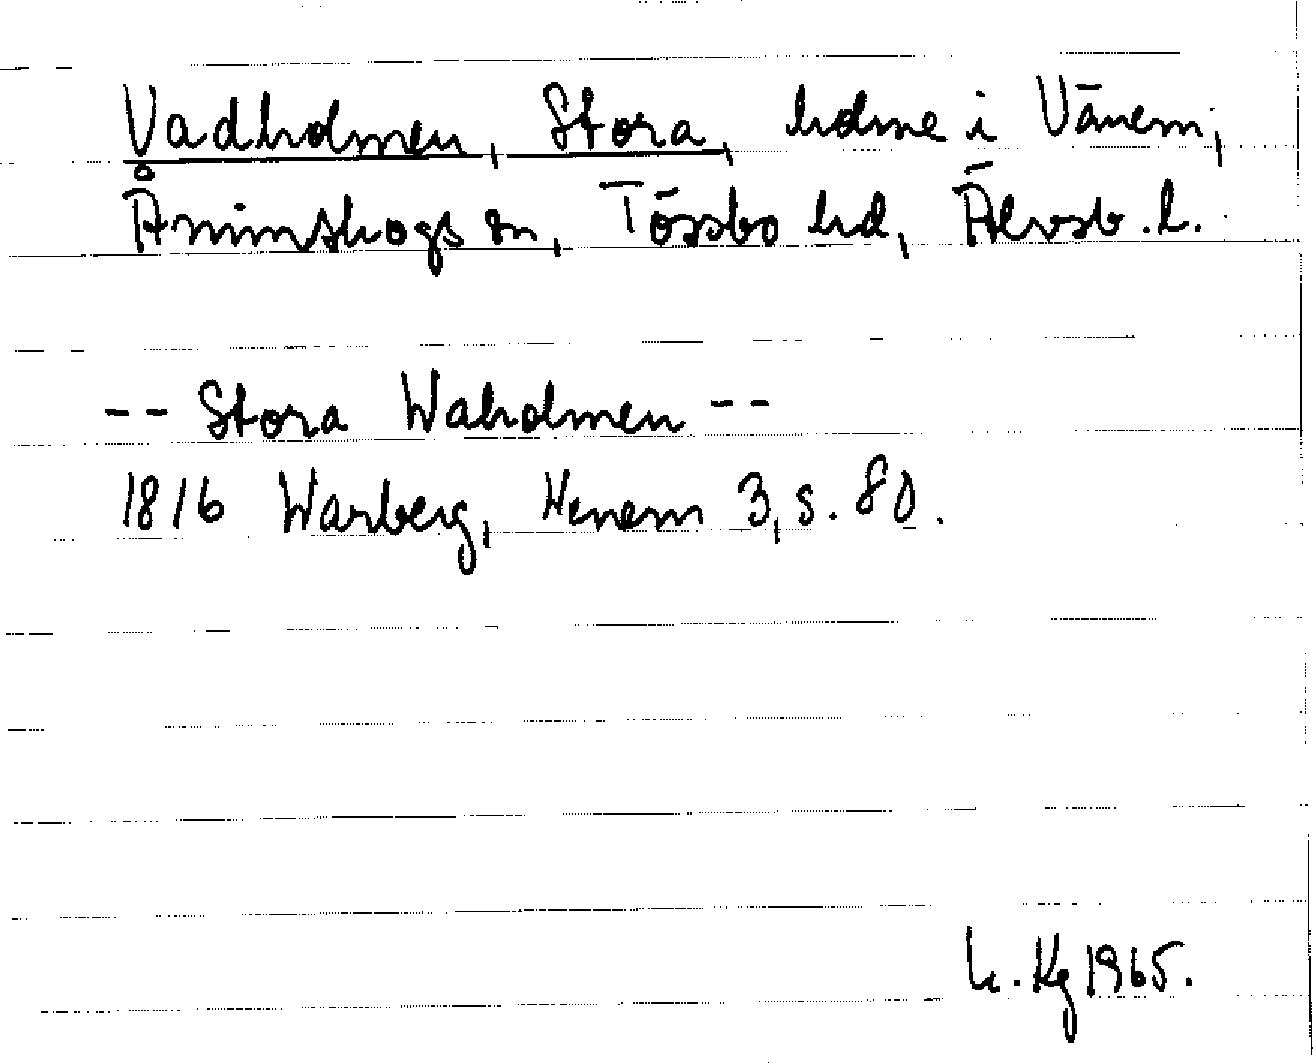 Vadholmen, Stora, holme i Vänern,
Ånimskogs sn, Tössbo hd, Älvsb. l.
-- Stora Waholmen --
1816 Warberg, Wenern 3, s. 80.
L. Kg 1965.